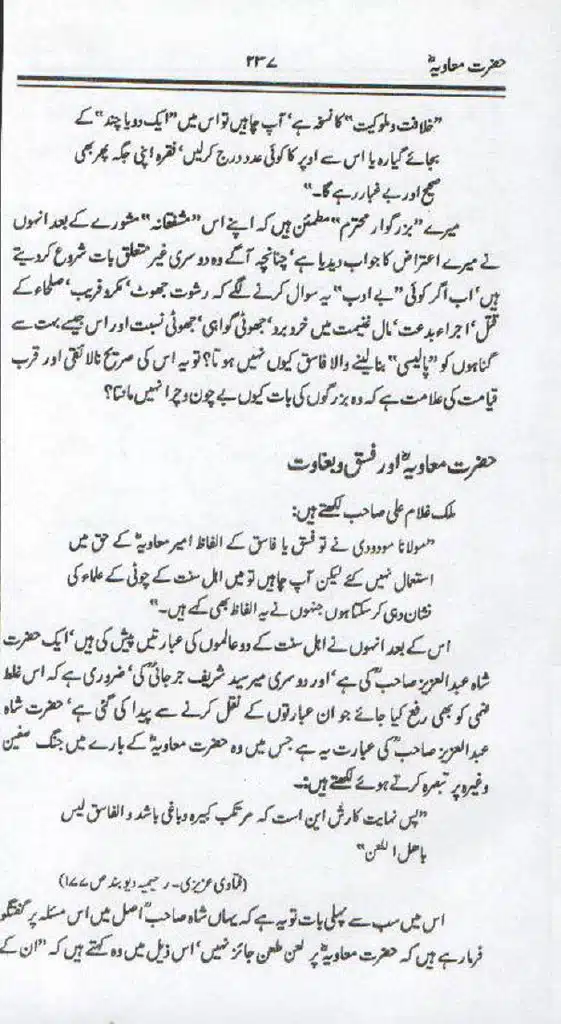 حضرت معاویہؓ
۲۳۷
"خلافت و ملوکیت" کا نسخہ ہے، آپ چاہیں تو اس میں "ایک دو یا چند" کے
بجائے گیارہ یا اس سے اوپر کا کوئی عدد درج کر لیں، فقرہ اپنی جگہ پھر بھی
صحیح اور بے غبار رہے گا۔"
میرے "بزرگوار محترم" مطمئن ہیں کہ اپنے اس "مشفقانہ" مشورے کے بعد انہوں
نے میرے اعتراض کا جواب دیدیا ہے، چنانچہ آگے وہ دوسری غیر متعلق بات شروع کر دیتے
ہیں، اب اگر کوئی "بے ادب" یہ سوال کرنے لگے کہ رشوت جھوٹ، مکر و فریب، صلحاء کے
قتل، اجراء بدعت، مال غنیمت میں خرد برد، جھوٹی گواہی، جھوٹی نسبت اور اس جیسے بہت سے
گناہوں کو "پالیسی" بنا لینے والا فاسق کیوں نہیں ہوتا؟ تو یہ اس کی صریح نالائقی اور قرب
قیامت کی علامت ہے کہ وہ بزرگوں کی بات کیوں بے چون و چرا نہیں مانتا؟
حضرت معاویہؓ اور فسق و بغاوت
ملک غلام علی صاحب لکھتے ہیں:
"مولانا مودودی نے تو فسق یا فاسق کے الفاظ امیر معاویہؓ کے حق میں
استعمال نہیں کئے لیکن آپ چاہیں تو میں اہل سنت کے چوٹی کے علماء کی
نشان دہی کر سکتا ہوں جنہوں نے یہ الفاظ بھی کہے ہیں۔"
اس کے بعد انہوں نے اہل سنت کے دو عالموں کی عبارتیں پیش کی ہیں، ایک حضرت
شاہ عبدالعزیز صاحبؒ کی ہے، اور دوسری میر سید شریف جرجانیؒ کی، ضروری ہے کہ اس غلط
فہمی کو بھی رفع کیا جائے جو ان عبارتوں کے نقل کرنے سے پیدا کی گئی ہے، حضرت شاہ
عبدالعزیز صاحبؒ کی عبارت یہ ہے جس میں وہ حضرت معاویہؓ کے بارے میں جنگ صفین
وغیرہ پر تبصرہ کرتے ہوئے لکھتے ہیں:۔
"پس نہایت کارش این است کہ مرتکب کبیرہ و باغی باشد و الفاسق لیس
باھل اللعن"
(فتاویٰ عزیزی۔ رحیمیہ دیوبند ص ۱۷۷)
اس میں سب سے پہلی بات تو یہ ہے کہ یہاں شاہ صاحبؒ اصل میں اس مسئلہ پر گفتگو
فرما رہے ہیں کہ حضرت معاویہؓ پر لعن طعن جائز نہیں، اس ذیل میں وہ کہتے ہیں کہ "ان کے